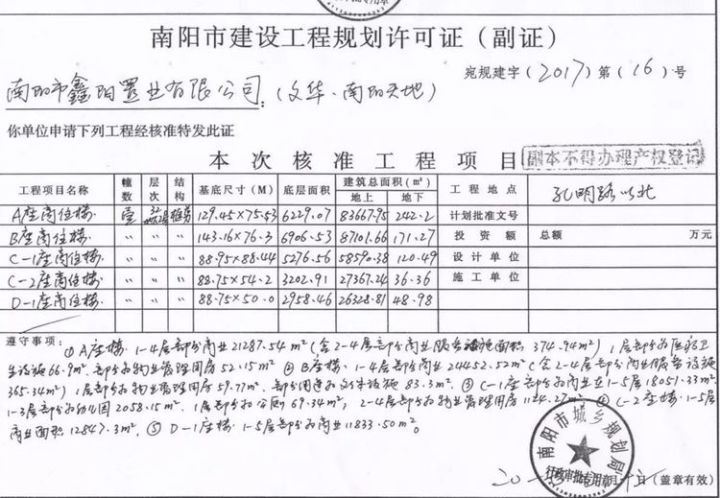 南阳市建设工程规划许可证（副证）
宛规建字（2017）第（16）号
南阳市鑫阳置业有限公司：（文华·南阳天地）
你单位申请下列工程经核准特发此证
本次核准工程项目
副本不得办理产权登记
工程项目名称 幢数 层次 结构 基底尺寸（M） 底层面积 建筑总面积（m²） 地上 地下 工程地点 孔明路以北
A座商住楼 壹 129.45×75.53 6229.07 83667.95 242.2 计划批准文号
B座商住楼 〃 〃 〃 143.16×76.3 6906.53 87101.66 171.27 投资额 总额 万元
C-1座商住楼 〃 〃 〃 88.95×88.44 5276.56 58590.38 120.49 设计单位
C-2座商住楼 〃 〃 〃 88.75×54.2 3202.91 27367.24 36.36 施工单位
D-1座商住楼 〃 〃 〃 88.75×50.0 2958.46 26328.81 48.98
遵守事项：
① A座楼：1-4层部分商业21287.54m²（含2-4层部分商业服务设施面积374.94m²）1层部分为
生设施66.9m²，部分为物业管理用房52.15m² ② B座楼：1-4层部分商业24452.52m²（含2-4层部分商业服务设施
365.34m²）1层部分为物业管理用房59.77m²，部分用途为 设施83.3m²。③ C-1座部分为商业在1-5层18051.33m²
1-3层部分为幼儿园2058.15m²，1层部分为公厕69.34m²；2-4层部分为物业管理用房1124.27m²。④ C-2座楼：1-5层
商业面积12847.3m²。⑤ D-1座楼 1-5层部分为商业11833.50m²。
南阳市城乡规划局
行政审批专用章
20 月 日（盖章有效）